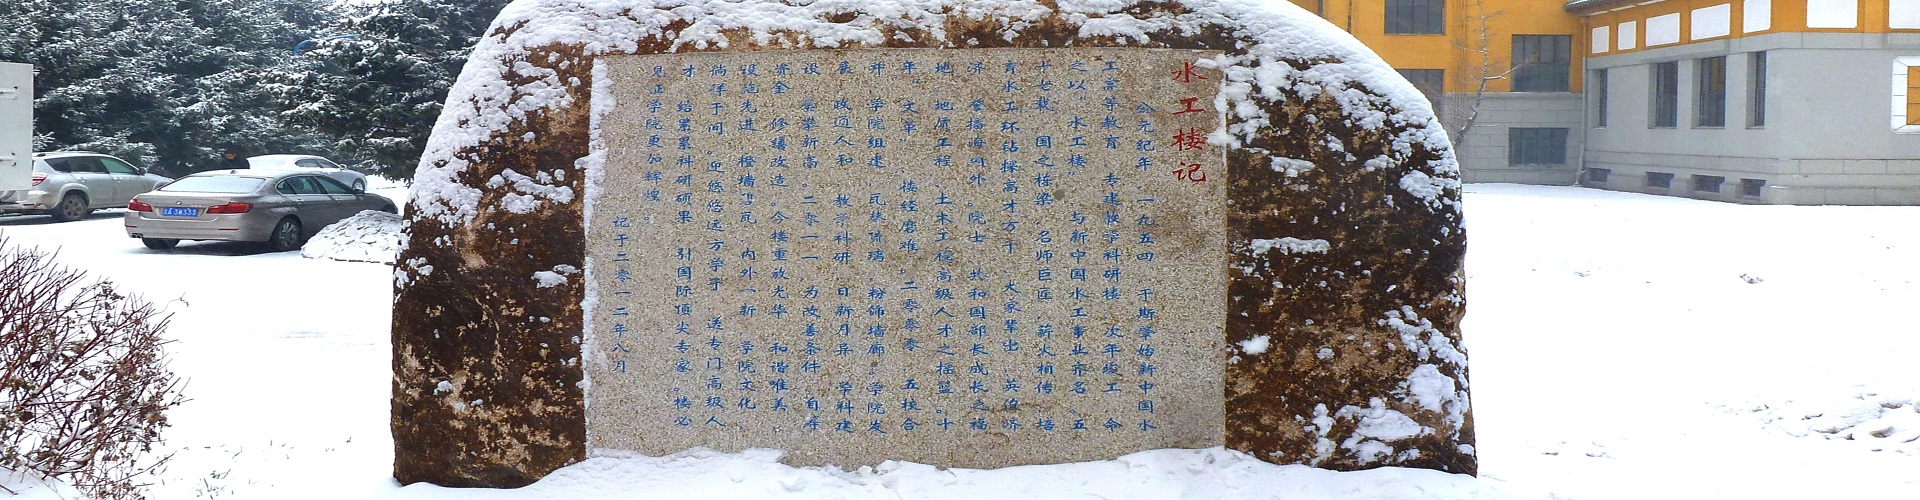 水工楼记
公元纪年，一九五四，于斯肇始新中国水
工高等教育，专建教学科研楼，次年竣工，命
之以"水工楼"，与新中国水工事业齐名。五
十七载，国之栋梁，名师巨匠，薪火相传，培
育水工环钻探高才万千，大家辈出，英徒济
济，誉播海内外。院士、共和国部长成长之福
地，地质工程、土木工程高级人才之摇篮。十
年"文革"，楼经磨难，二零零零，五校合
并，学院组建，瓦葺琉璃，粉饰墙廊。学院发
展，政通人和，教学科研，日新月异，学科建
设，屡攀新高。二零一一，为改善条件，自筹
资金，修缮改造。今楼重放光华，和谐唯美，
设施先进，橙墙雪瓦，内外一新，学院文化，
徜徉于间，迎悠悠远方学子，送专门高级人
才，结累累科研硕果，引国际顶尖专家。楼必
见证学院更加辉煌。
记于二零一二年八月